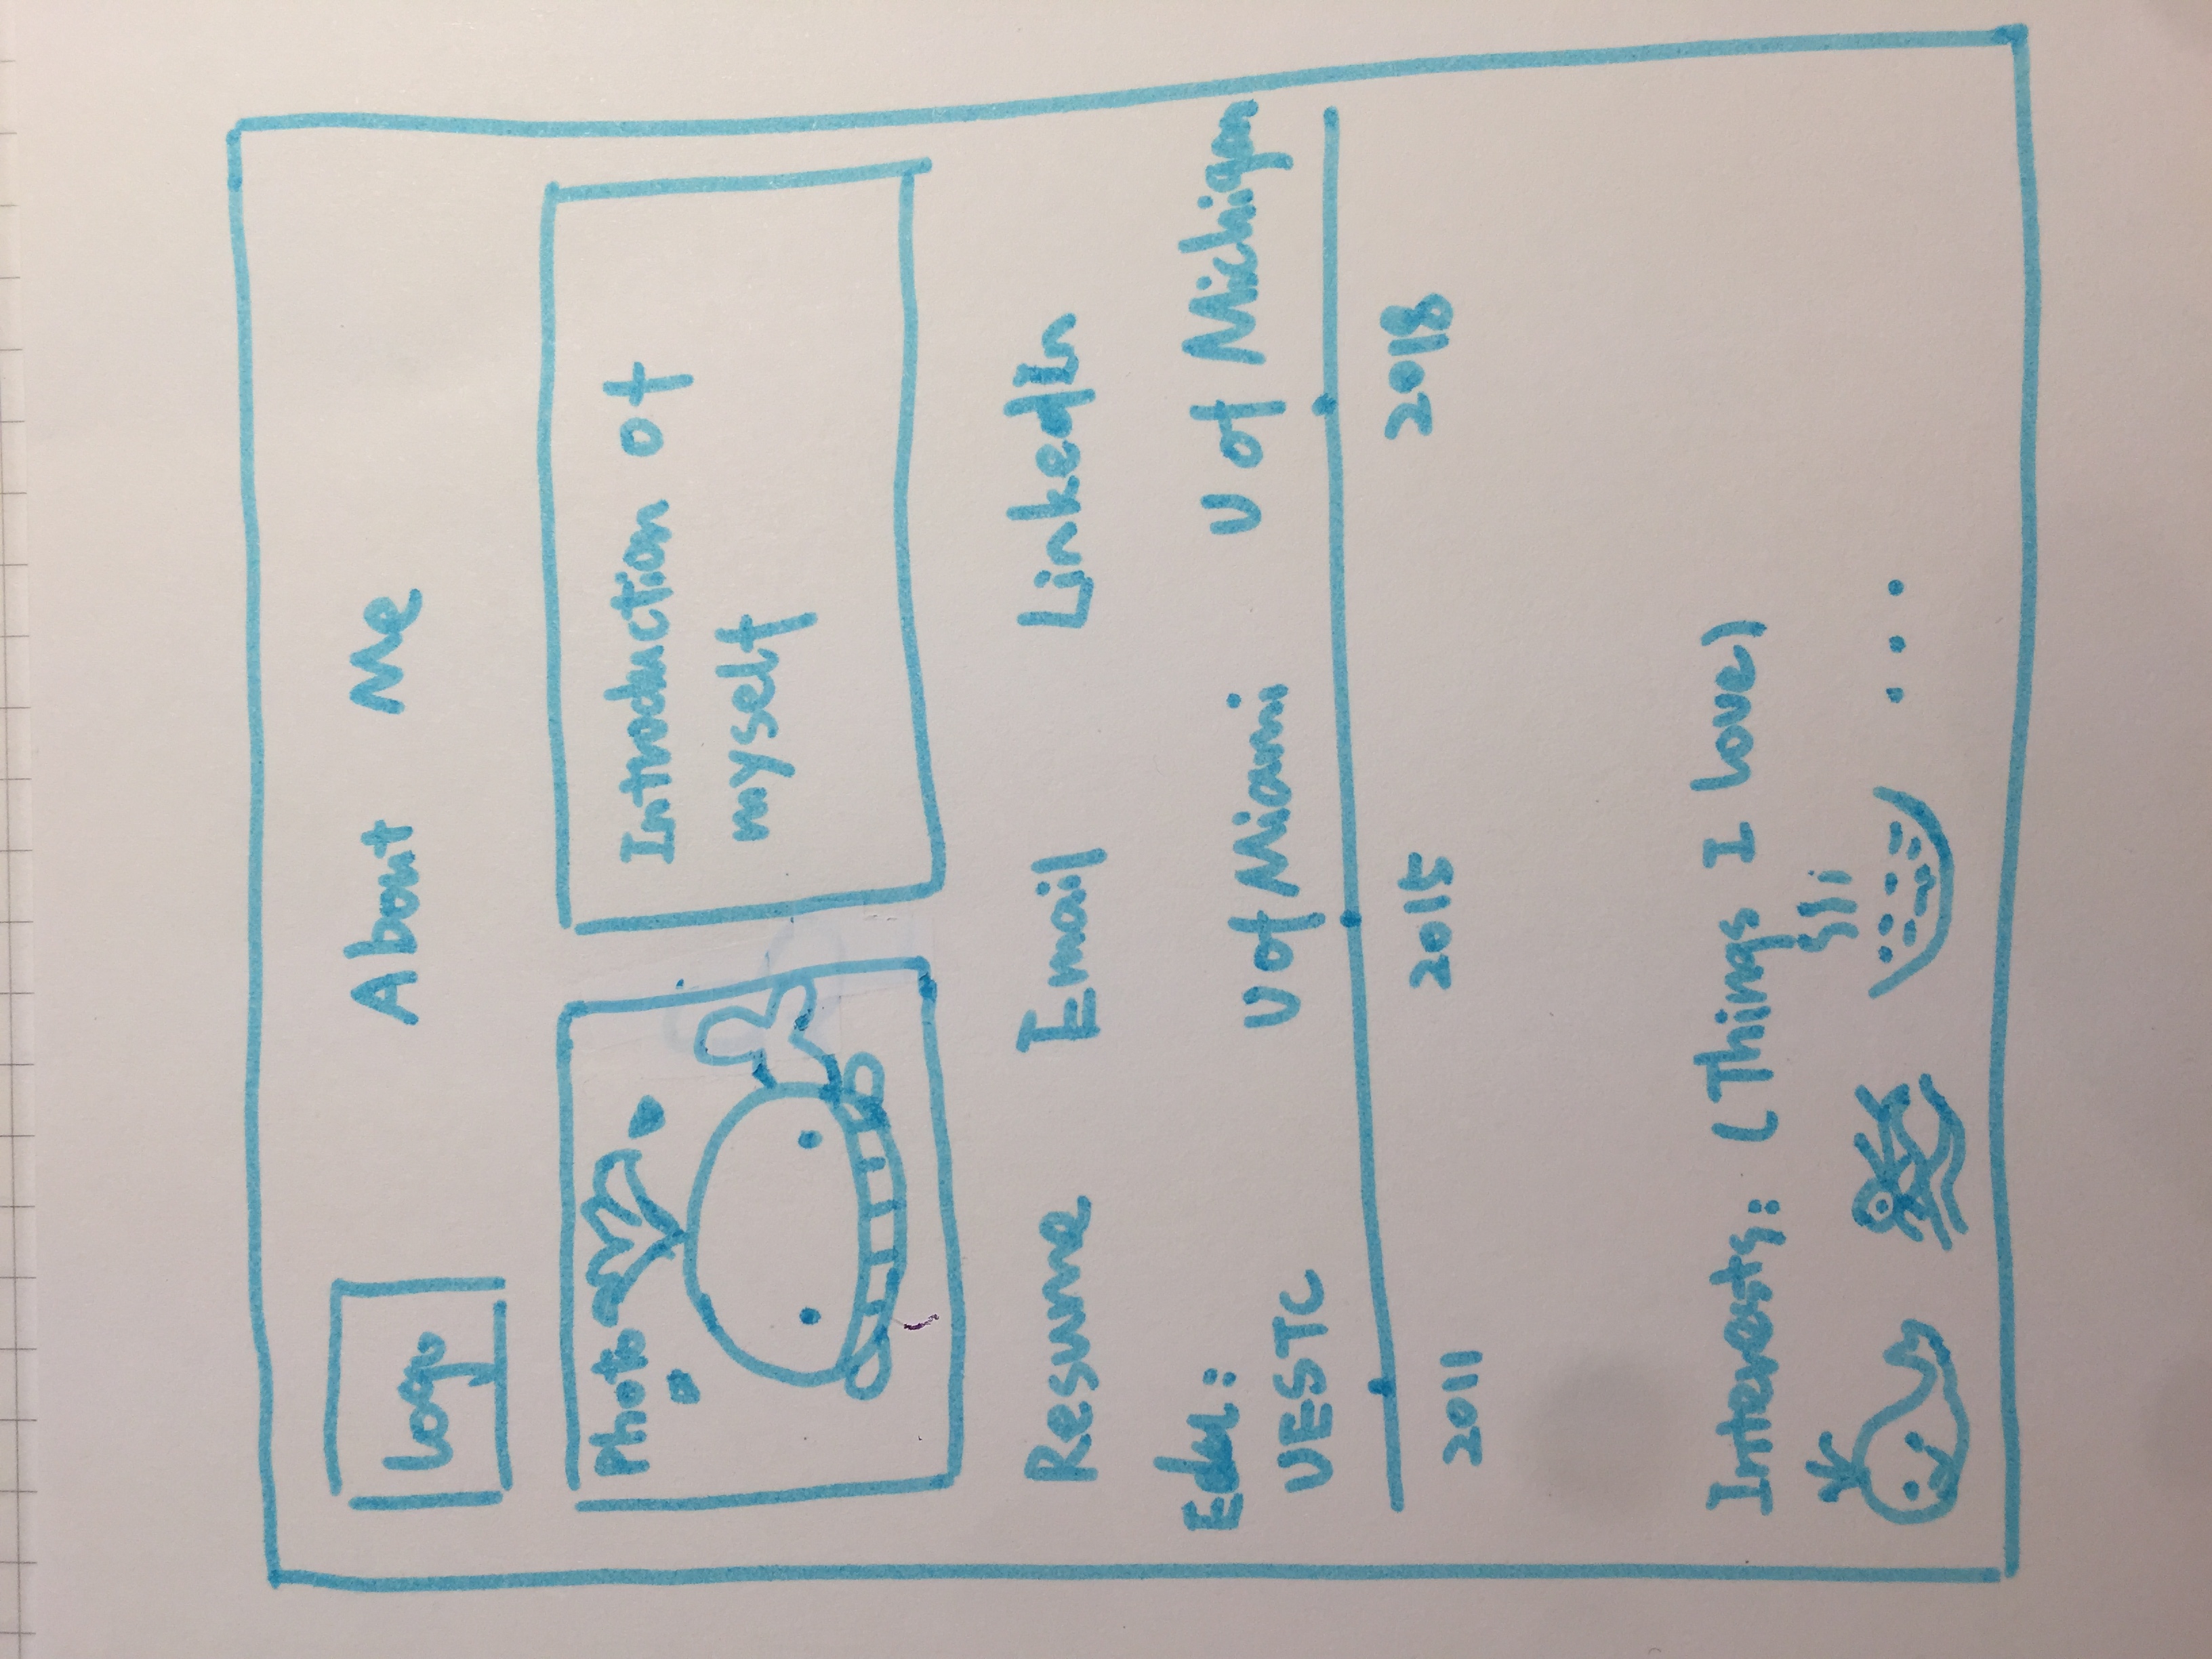 Logo
About Me
Photo
Introduction of
myself
Resume Email LinkedIn
Edu:
UESTC U of Miami U of Michigan
2011 2015 2018
Interests: (Things I Love)
...